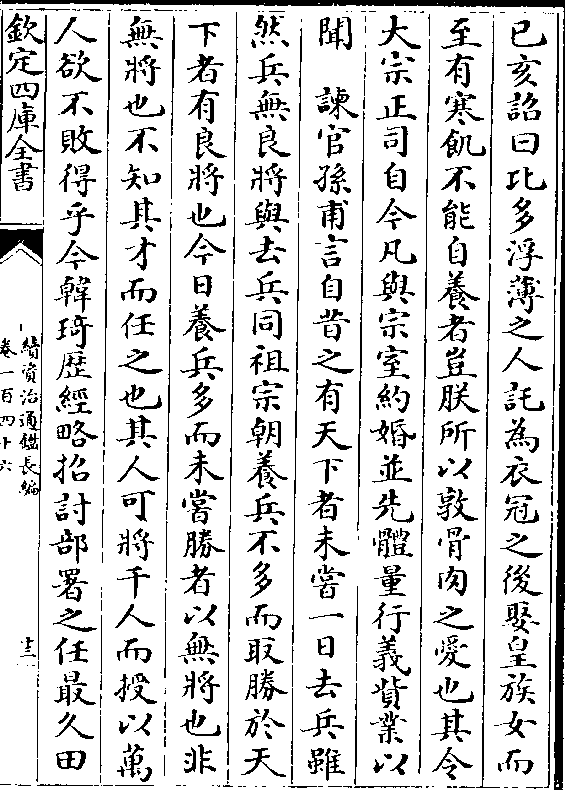 已亥詔曰比多浮薄之人託為衣冠之後娶皇族女而
至有寒飢不能自養者豈朕所以敦骨肉之愛也其令
大宗正司自今凡與宗室約婚並先體量行義貲業以
聞　諫官孫甫言自昔之有天下者未嘗一日去兵雖
然兵無良將與去兵同祖宗朝養兵不多而取勝於天
下者有良將也今日養兵多而未嘗勝者以無將也非
無將也不知其才而任之也其人可將千人而授以萬
人欲不敗得乎今韓琦歷經略招討部署之任最久田
欽定四庫全書
續資治通鑑長編
卷一百四十六
十三